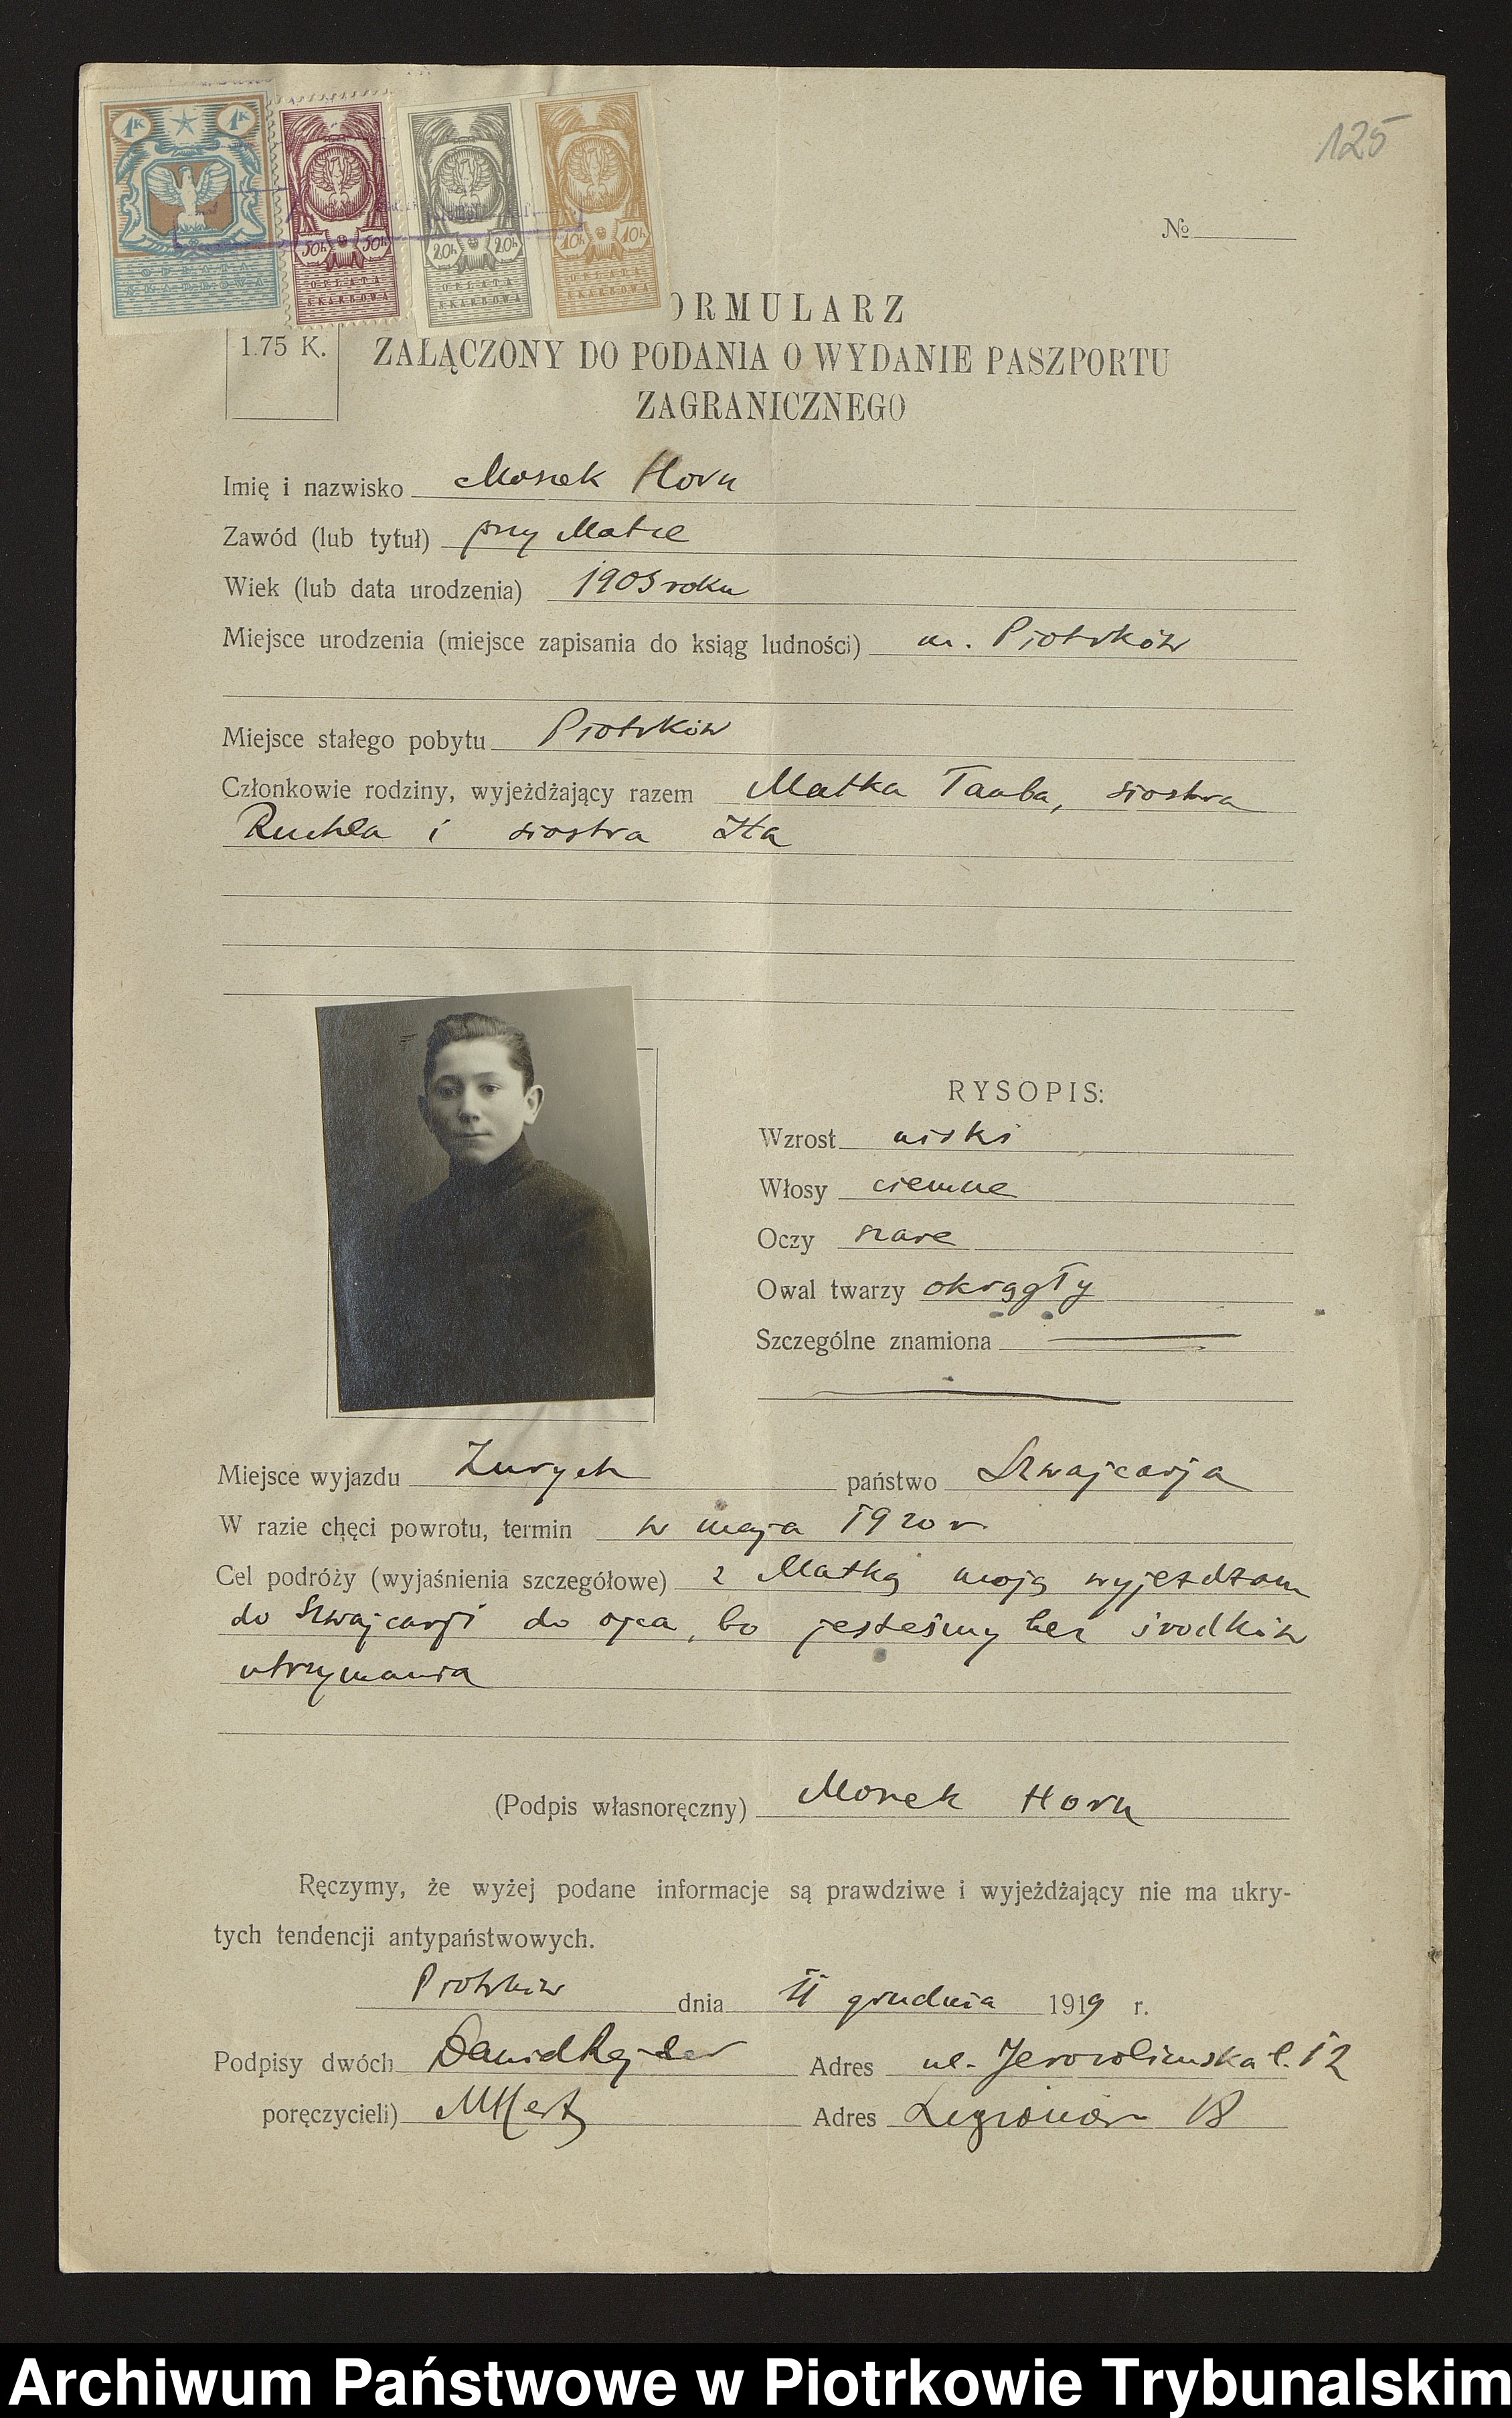 125
1K 1K
50h 50h
20h 20h
10h 10h
OPŁATA SKARBOWA
OPŁATA SKARBOWA
OPŁATA SKARBOWA
OPŁATA SKARBOWA
№
ORMULARZ
1.75 K.
ZAŁĄCZONY DO PODANIA O WYDANIE PASZPORTU
ZAGRANICZNEGO
Imię i nazwisko Moszek Horn
Zawód (lub tytuł) przy Matce
Wiek (lub data urodzenia) 1905 roku
Miejsce urodzenia (miejsce zapisania do ksiąg ludności) m. Piotrków
Miejsce stałego pobytu Piotrków
Członkowie rodziny, wyjeżdżający razem Matka Tauba, siostra
Ruchla i siostra Ita
RYSOPIS:
Wzrost niski
Włosy ciemne
Oczy szare
Owal twarzy okrągły
Szczególne znamiona
Miejsce wyjazdu Zurych państwo Szwajcarja
W razie chęci powrotu, termin w maja 1920 r.
Cel podróży (wyjaśnienia szczegółowe) z Matką moją wyjezdzam
do Szwajcarji do ojca, bo jesteśmy bez środków
utrzymania
(Podpis własnoręczny) Moszek Horn
Ręczymy, że wyżej podane informacje są prawdziwe i wyjeżdżający nie ma ukry-
tych tendencji antypaństwowych.
Piotrków dnia 11 grudnia 1919 r.
Podpisy dwóch Dawid Adres ul. Jerozolimska l. 12
poręczycieli) Adres Legionów 18
Archiwum Państwowe w Piotrkowie Trybunalskim